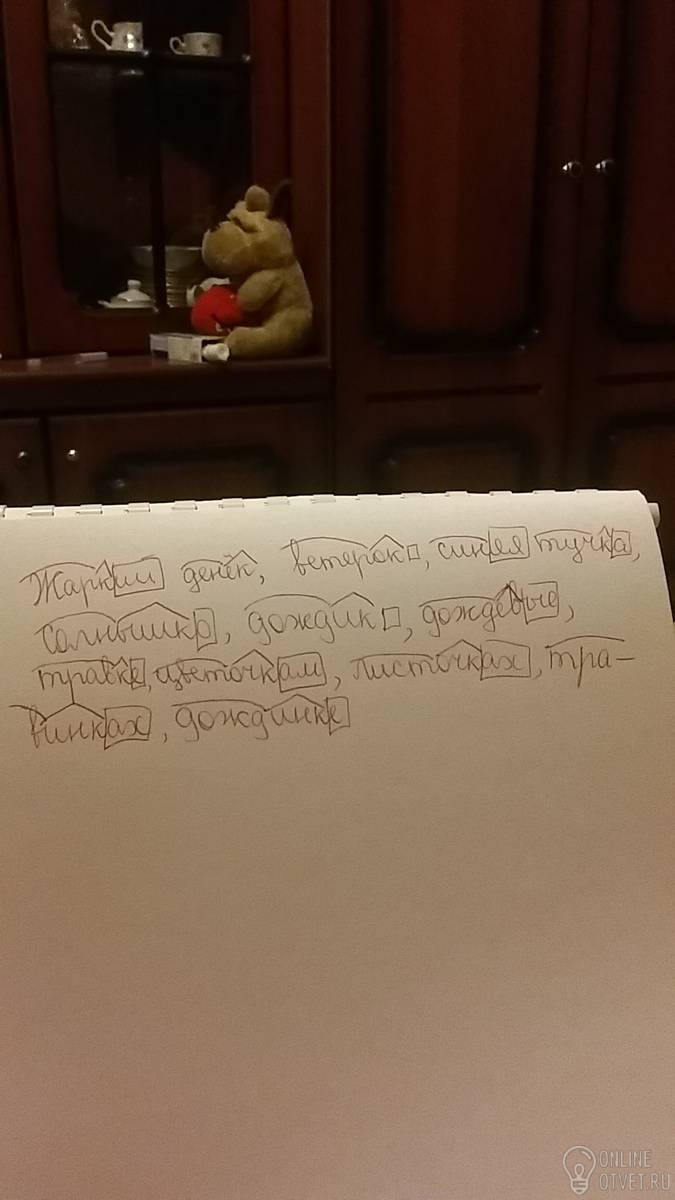 Жаркий денёк, ветерок, синяя тучка,
солнышко, дождик, дождевые,
травке, цветочкам, листочках, тра-
винках, дождинке
ONLINE
OTVET.RU